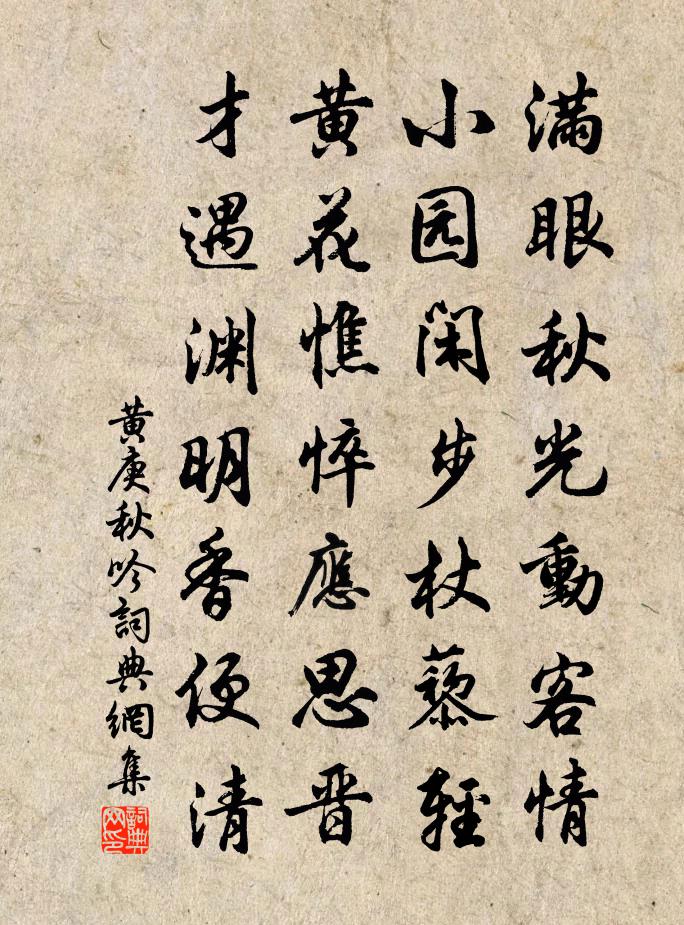 满眼秋光動客情
小园闲步杖藜輕
黄花憔悴應思晋
才遇渊明香便清
黄庚秋吟詞典網集
詞典网印